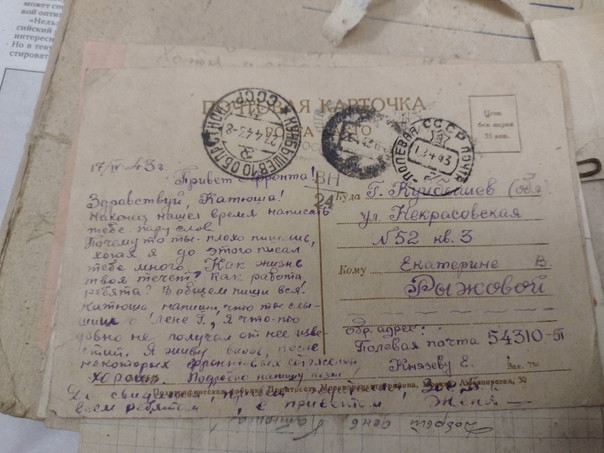 может с
ой опти
«Нель
сийский
интересн
Но в теку
стироват
ПОЧТОВАЯ КАРТОЧКА
КУЙБЫШЕВ 10 ОБЛ.
СССР
27.4.43-8
ПОЛЕВАЯ ПОЧТА
СССР
Цена
без марки
17/IV-43 г.
Привет с фронта!
Здравствуй, Катюша!
Наконец нашел время написать
тебе пару слов.
Почему то ты плохо пишешь,
хотя я до этого писал
тебе много. Как жизнь
твоя течет? Как работа,
ребята? В общем пиши все.
Катюша, напиши, что ты слы-
шишь о Лене Г., я что-то
давно не получал от нее изве-
стий. Я живу после
некоторых фронтовых
хорошо. Подробно напишу позже.
До свидания,
всем ребятам, с приветом, Женя
ВН
24
Куда г. Куйбышев (обл)
ул. Некрасовская
№52 кв. 3
Кому Екатерине В.
Рыжовой
обр. адрес:
Полевая почта 54310-П
Князеву Е.
Зак.